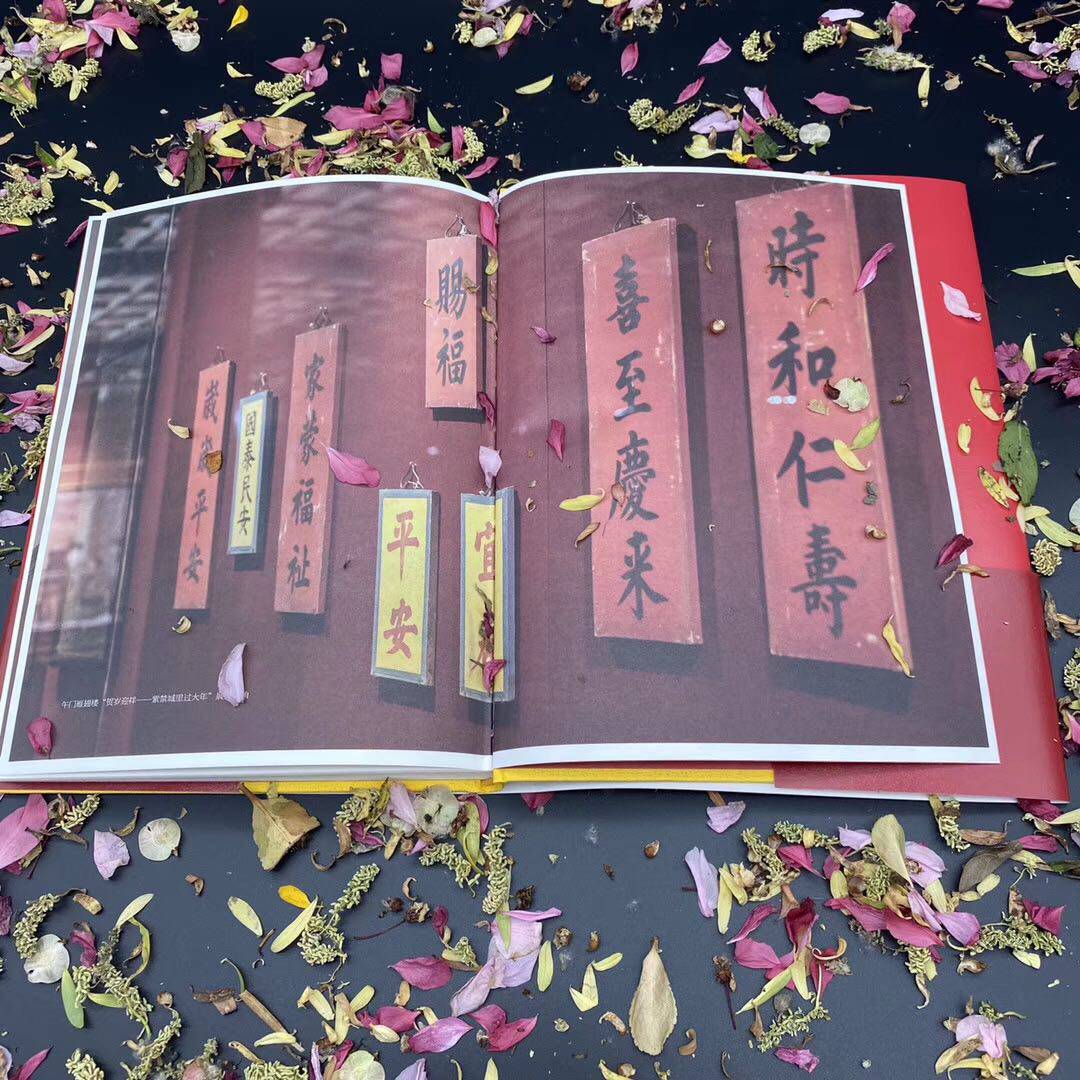 嵗嵗平安
國泰民安
家蒙福祉
賜福
平安
宜
喜至慶来
時和仁壽
午门雁翅楼“贺岁迎祥——紫禁城里过大年”展